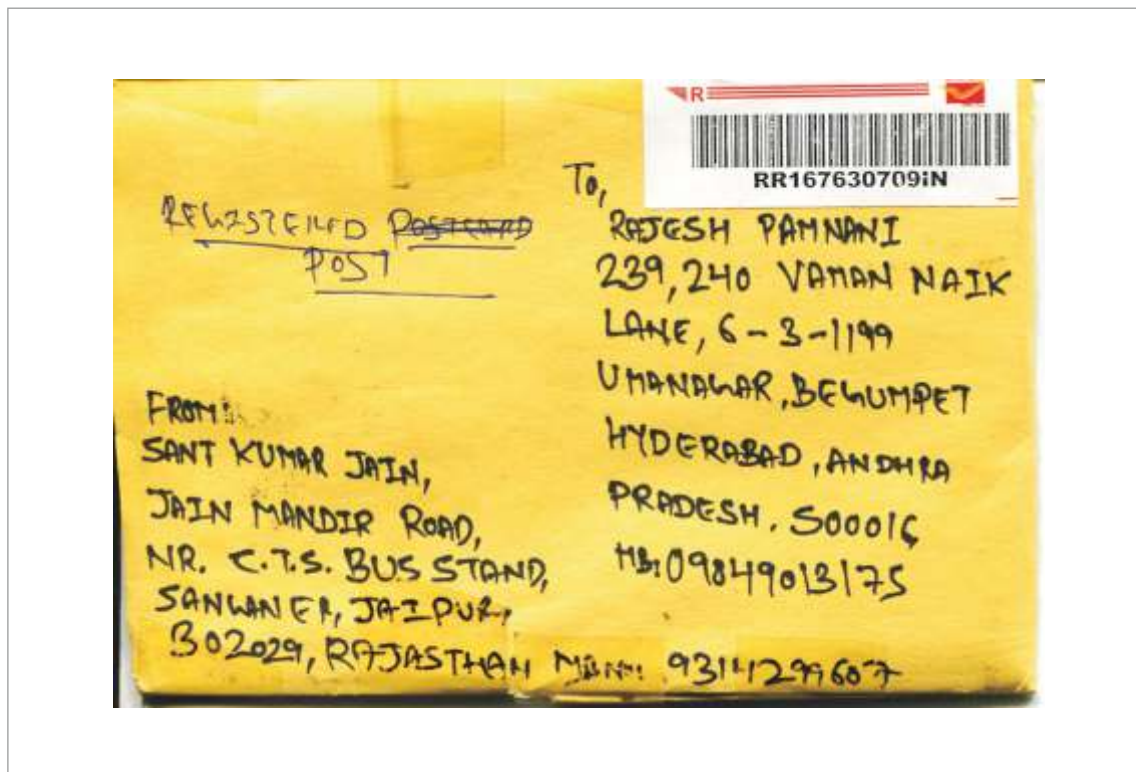 R
RR167630709iN
REGISTERED POSTCARD
POST
To,
RAJESH PAMNANI
239, 240 VAMAN NAIK
LANE, 6-3-1199
UMANAGAR, BEGUMPET
HYDERABAD, ANDHRA
PRADESH. 500016
MB: 09849013175
FROM:
SANT KUMAR JAIN,
JAIN MANDIR ROAD,
NR. C.T.S. BUS STAND,
SANGANER, JAIPUR,
302029, RAJASTHAN 9314299607